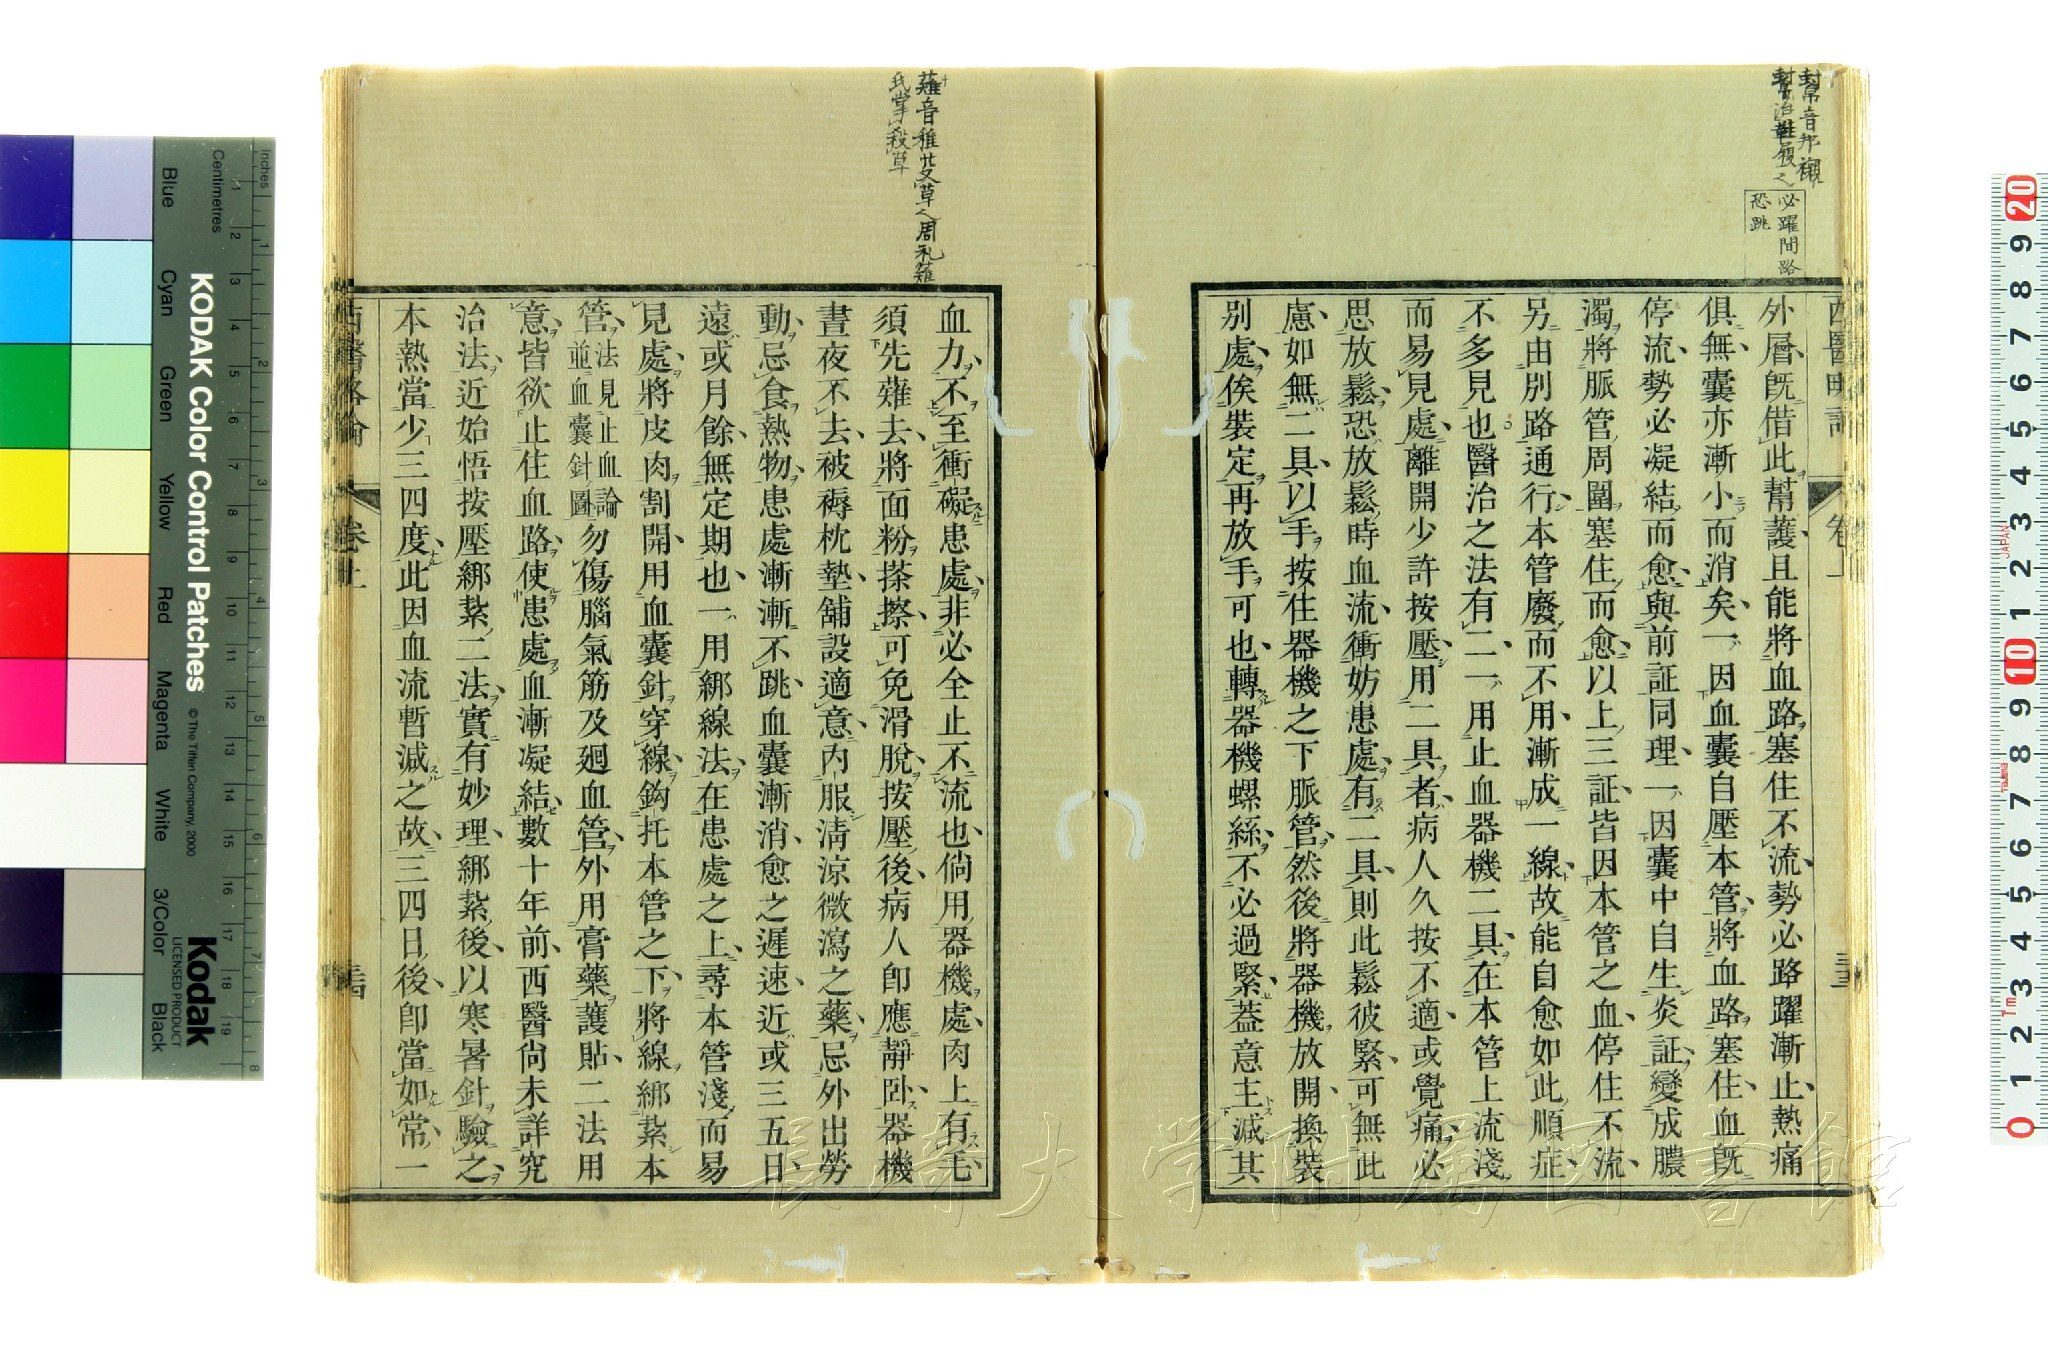 幇音邦襯
必躍間路
恐跳
西醫略論
卷上
三十三
外層既借此幇護且能將血路塞住不流勢必路躍漸止熱痛
俱無囊亦漸小而消矣一因血囊自壓本管將血路塞住血既
停流勢必凝結而愈與前証同理一因囊中自生炎証變成膿
濁將脈管周圍塞住而愈以上三証皆因本管之血停住不流
另由別路通行本管廢而不用漸成一線故能自愈如此順症
不多見也醫治之法有二一用止血器機二具在本管上流淺
而易見處離開少許按壓用二具者病人久按不適或覺痛必
思放鬆恐放鬆時血流衝妨患處有二具則此鬆彼緊可無此
慮如無二具以手按住器機之下脈管然後將器機放開換裝
別處俟裝定再放手可也轉器機螺絲不必過緊葢意主減其
薙音稚芟草之周礼薙
氏掌殺草
血力不至衝礙患處非必全止不流也倘用器機處肉上有毛
須先薙去將面粉搽擦可免滑脫按壓後病人卽應靜卧器機
晝夜不去被褥枕墊舖設適意內服淸涼微瀉之藥忌外出勞
動忌食熱物患處漸漸不跳血囊漸消愈之遲速近或三五日
遠或月餘無定期也一用綁線法在患處之上尋本管淺而易
見處將皮肉割開用血囊針穿線鈎托本管之下將線綁紮本
管法見止血論並血囊針圖勿傷腦氣筋及廻血管外用膏藥護貼二法用
意皆欲止住血路使患處血漸凝結數十年前西醫尙未詳究
治法近始悟按壓綁紮二法實有妙理綁紮後以寒暑針驗之
本熱當少三四度此因血流暫減之故三四日後卽當如常一
西醫略論
卷上
三十四
Centimetres
Inches
Blue
Cyan
Green
Yellow
Red
Magenta
White
3/Color
Black
KODAK Color Control Patches
© The Tiffen Company, 2000
Kodak
LICENSED PRODUCT
JAPAN
長崎大学附属図書館